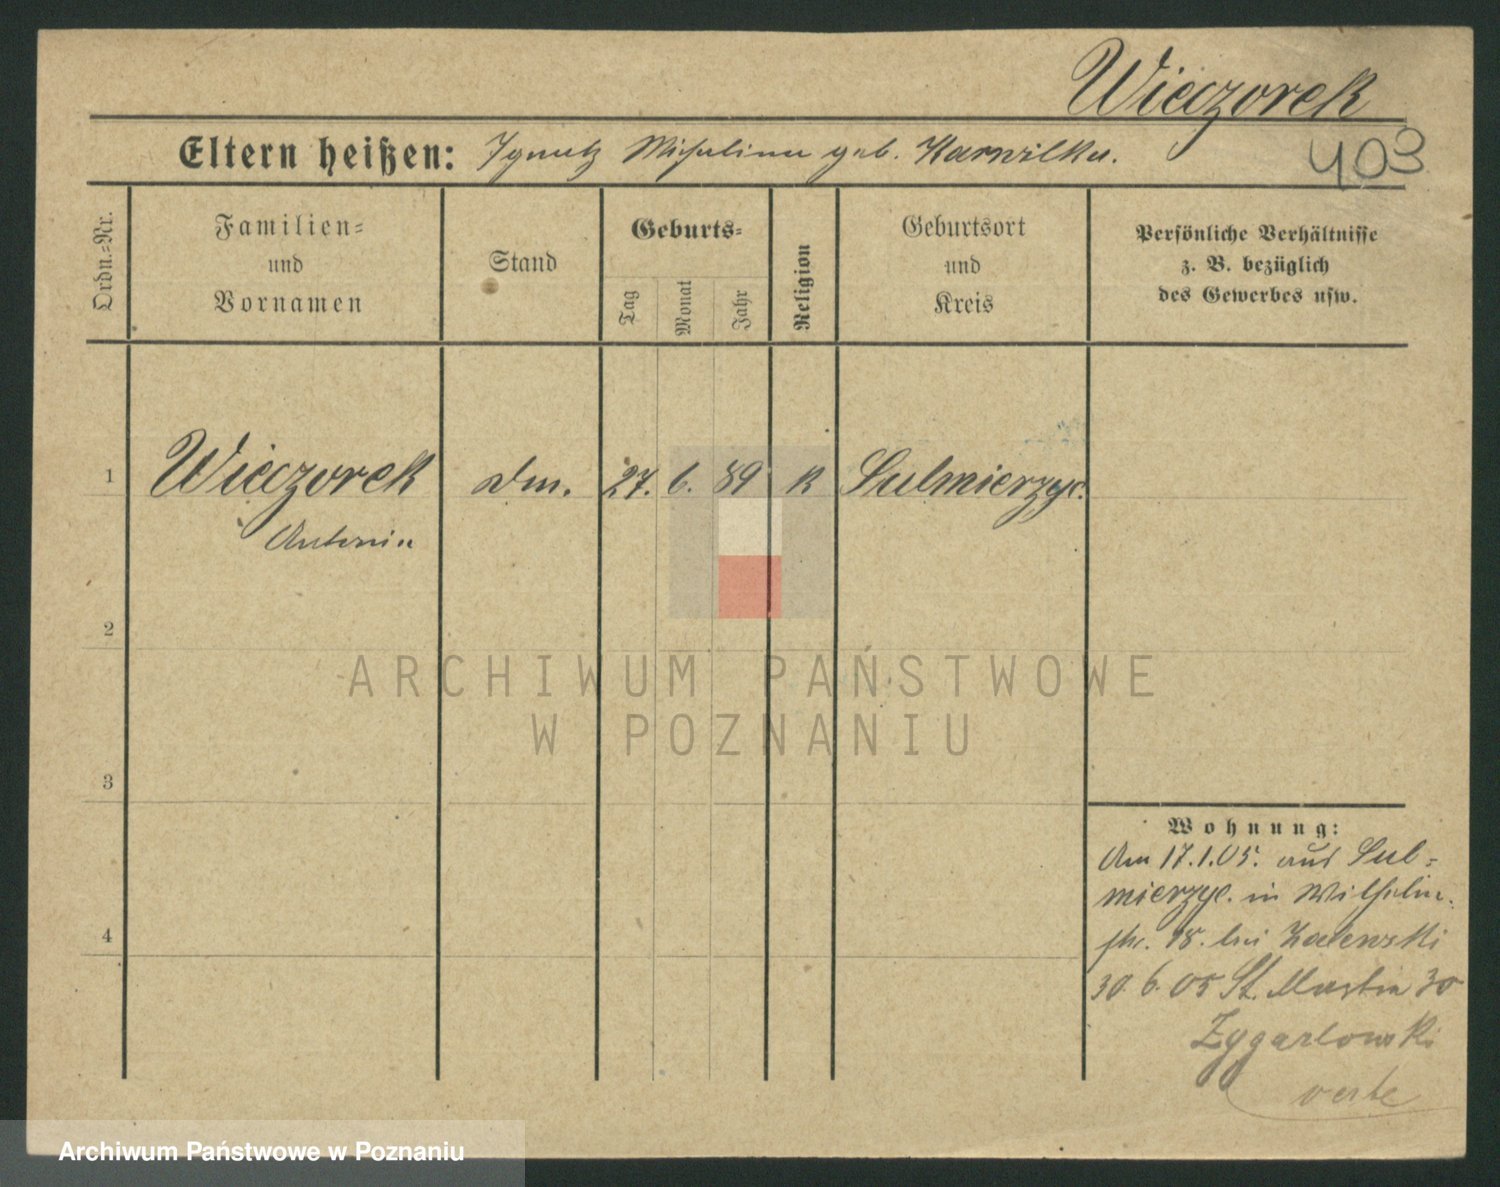 Wieczorek
403
Eltern heißen: Ignatz Michalina geb. Karwilka.
Ordn.-Nr.
Familien-
und
Vornamen
Stand
Geburts-
Tag
Monat
Jahr
Religion
Geburtsort
und
Kreis
Persönliche Verhältnisse
z. B. bezüglich
des Gewerbes usw.
1
Wieczorek
Antonia
27. 6. 89
K
Sulmierzyc.
2
ARCHIWUM PAŃSTWOWE
W POZNANIU
3
Wohnung:
Am 17.1.05. aus Sul-
mierzyc. in Wilhelm-
str. 18. bei Zalewski
4
30. 6. 05 St. Martin 30
Zygarlowski
verte
Archiwum Państwowe w Poznaniu